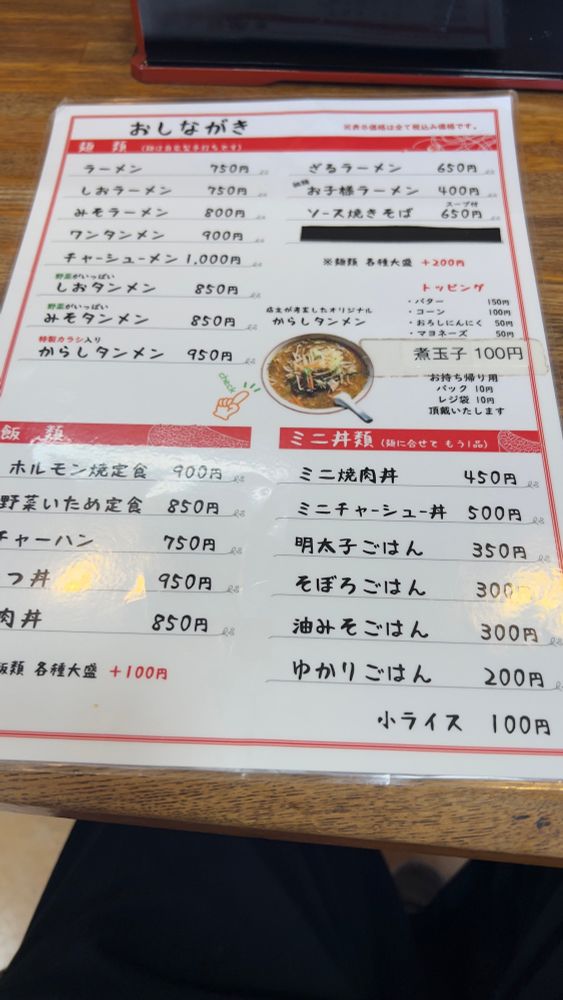 おしながき
※表示価格は全て税込み価格です。
麺類 (麺は自家製手打ちです)
ラーメン 750円
しおラーメン 750円
みそラーメン 800円
ワンタンメン 900円
チャーシューメン 1,000円
野菜がいっぱい
しおタンメン 850円
野菜がいっぱい
みそタンメン 850円
特製カラシ入り
からしタンメン 950円
check
ざるラーメン 650円
お子様ラーメン 400円
スープ付
ソース焼きそば 650円
※麺類 各種大盛 +200円
トッピング
・バター 150円
・コーン 100円
・おろしにんにく 50円
・マヨネーズ 50円
煮玉子 100円
店主が考案したオリジナル
からしタンメン
お持ち帰り用
パック 10円
レジ袋 10円
頂戴いたします
飯類
ホルモン焼定食 900円
野菜いため定食 850円
チャーハン 750円
つ丼 950円
肉丼 850円
飯類 各種大盛 +100円
ミニ丼類 (麺に合せて もう1品)
ミニ焼肉丼 450円
ミニチャーシュー丼 500円
明太子ごはん 350円
そぼろごはん 300円
油みそごはん 300円
ゆかりごはん 200円
小ライス 100円